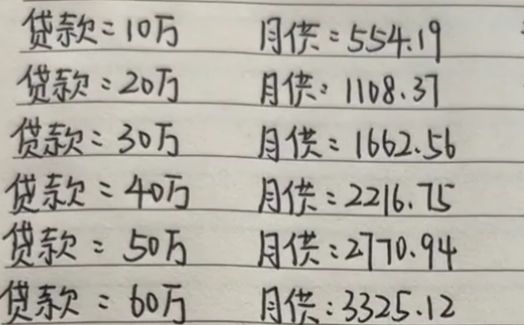 贷款=10万 月供:554.19
贷款:20万 月供:1108.37
贷款:30万 月供:1662.56
贷款:40万 月供:2216.75
贷款:50万 月供:2770.94
贷款:60万 月供:3325.12